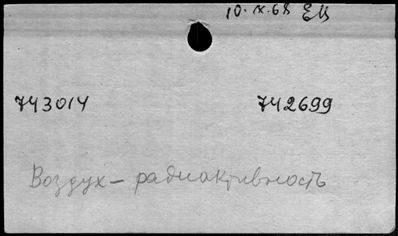 10.X.68 ЕЦ
743014 742699
Воздух – радиоактивность